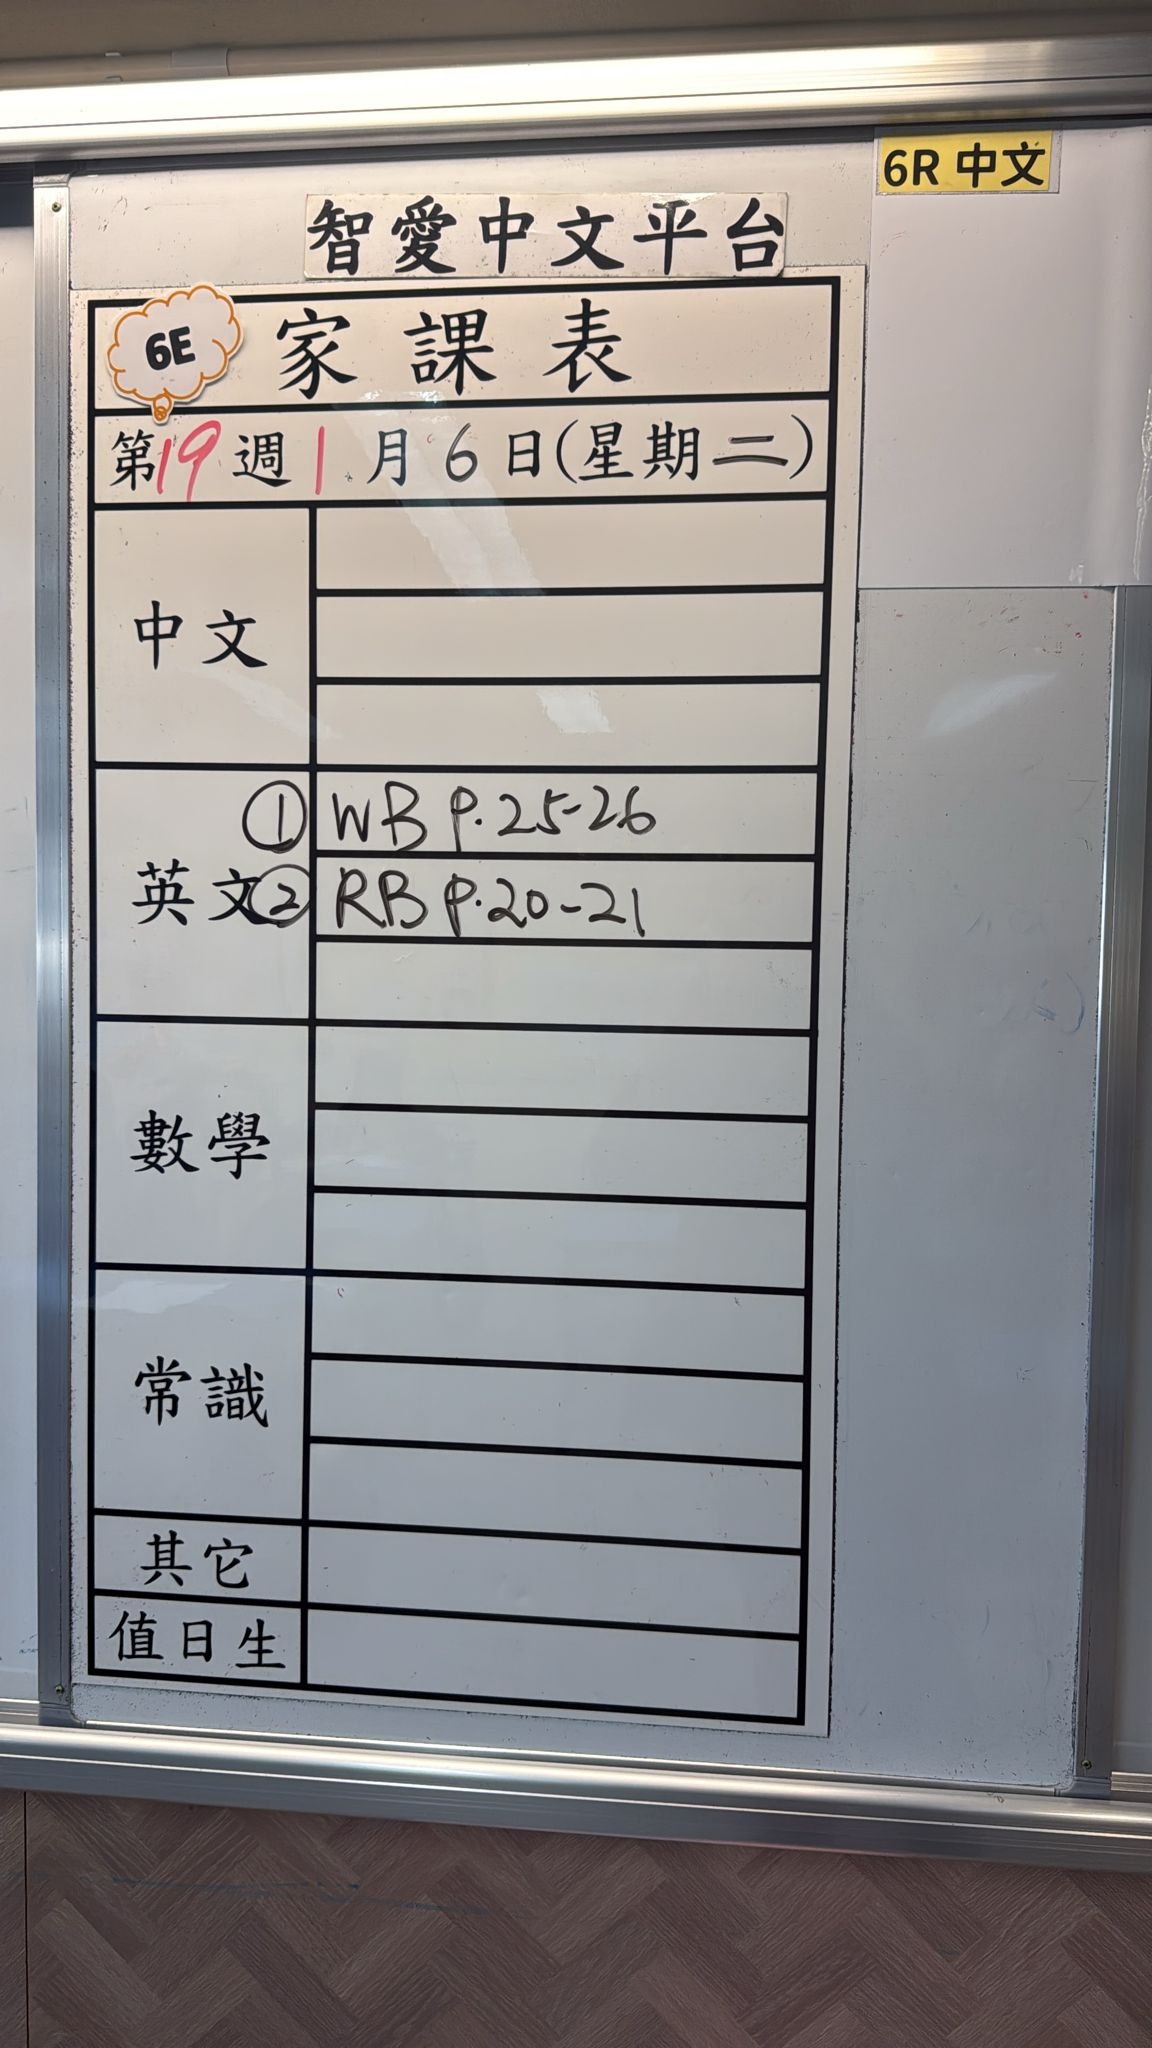 6R 中文
智愛中文平台
6E 家課表
第19週1月6日(星期二)
中文
英文
① WB p.25-26
② RB p.20-21
數學
常識
其它
值日生